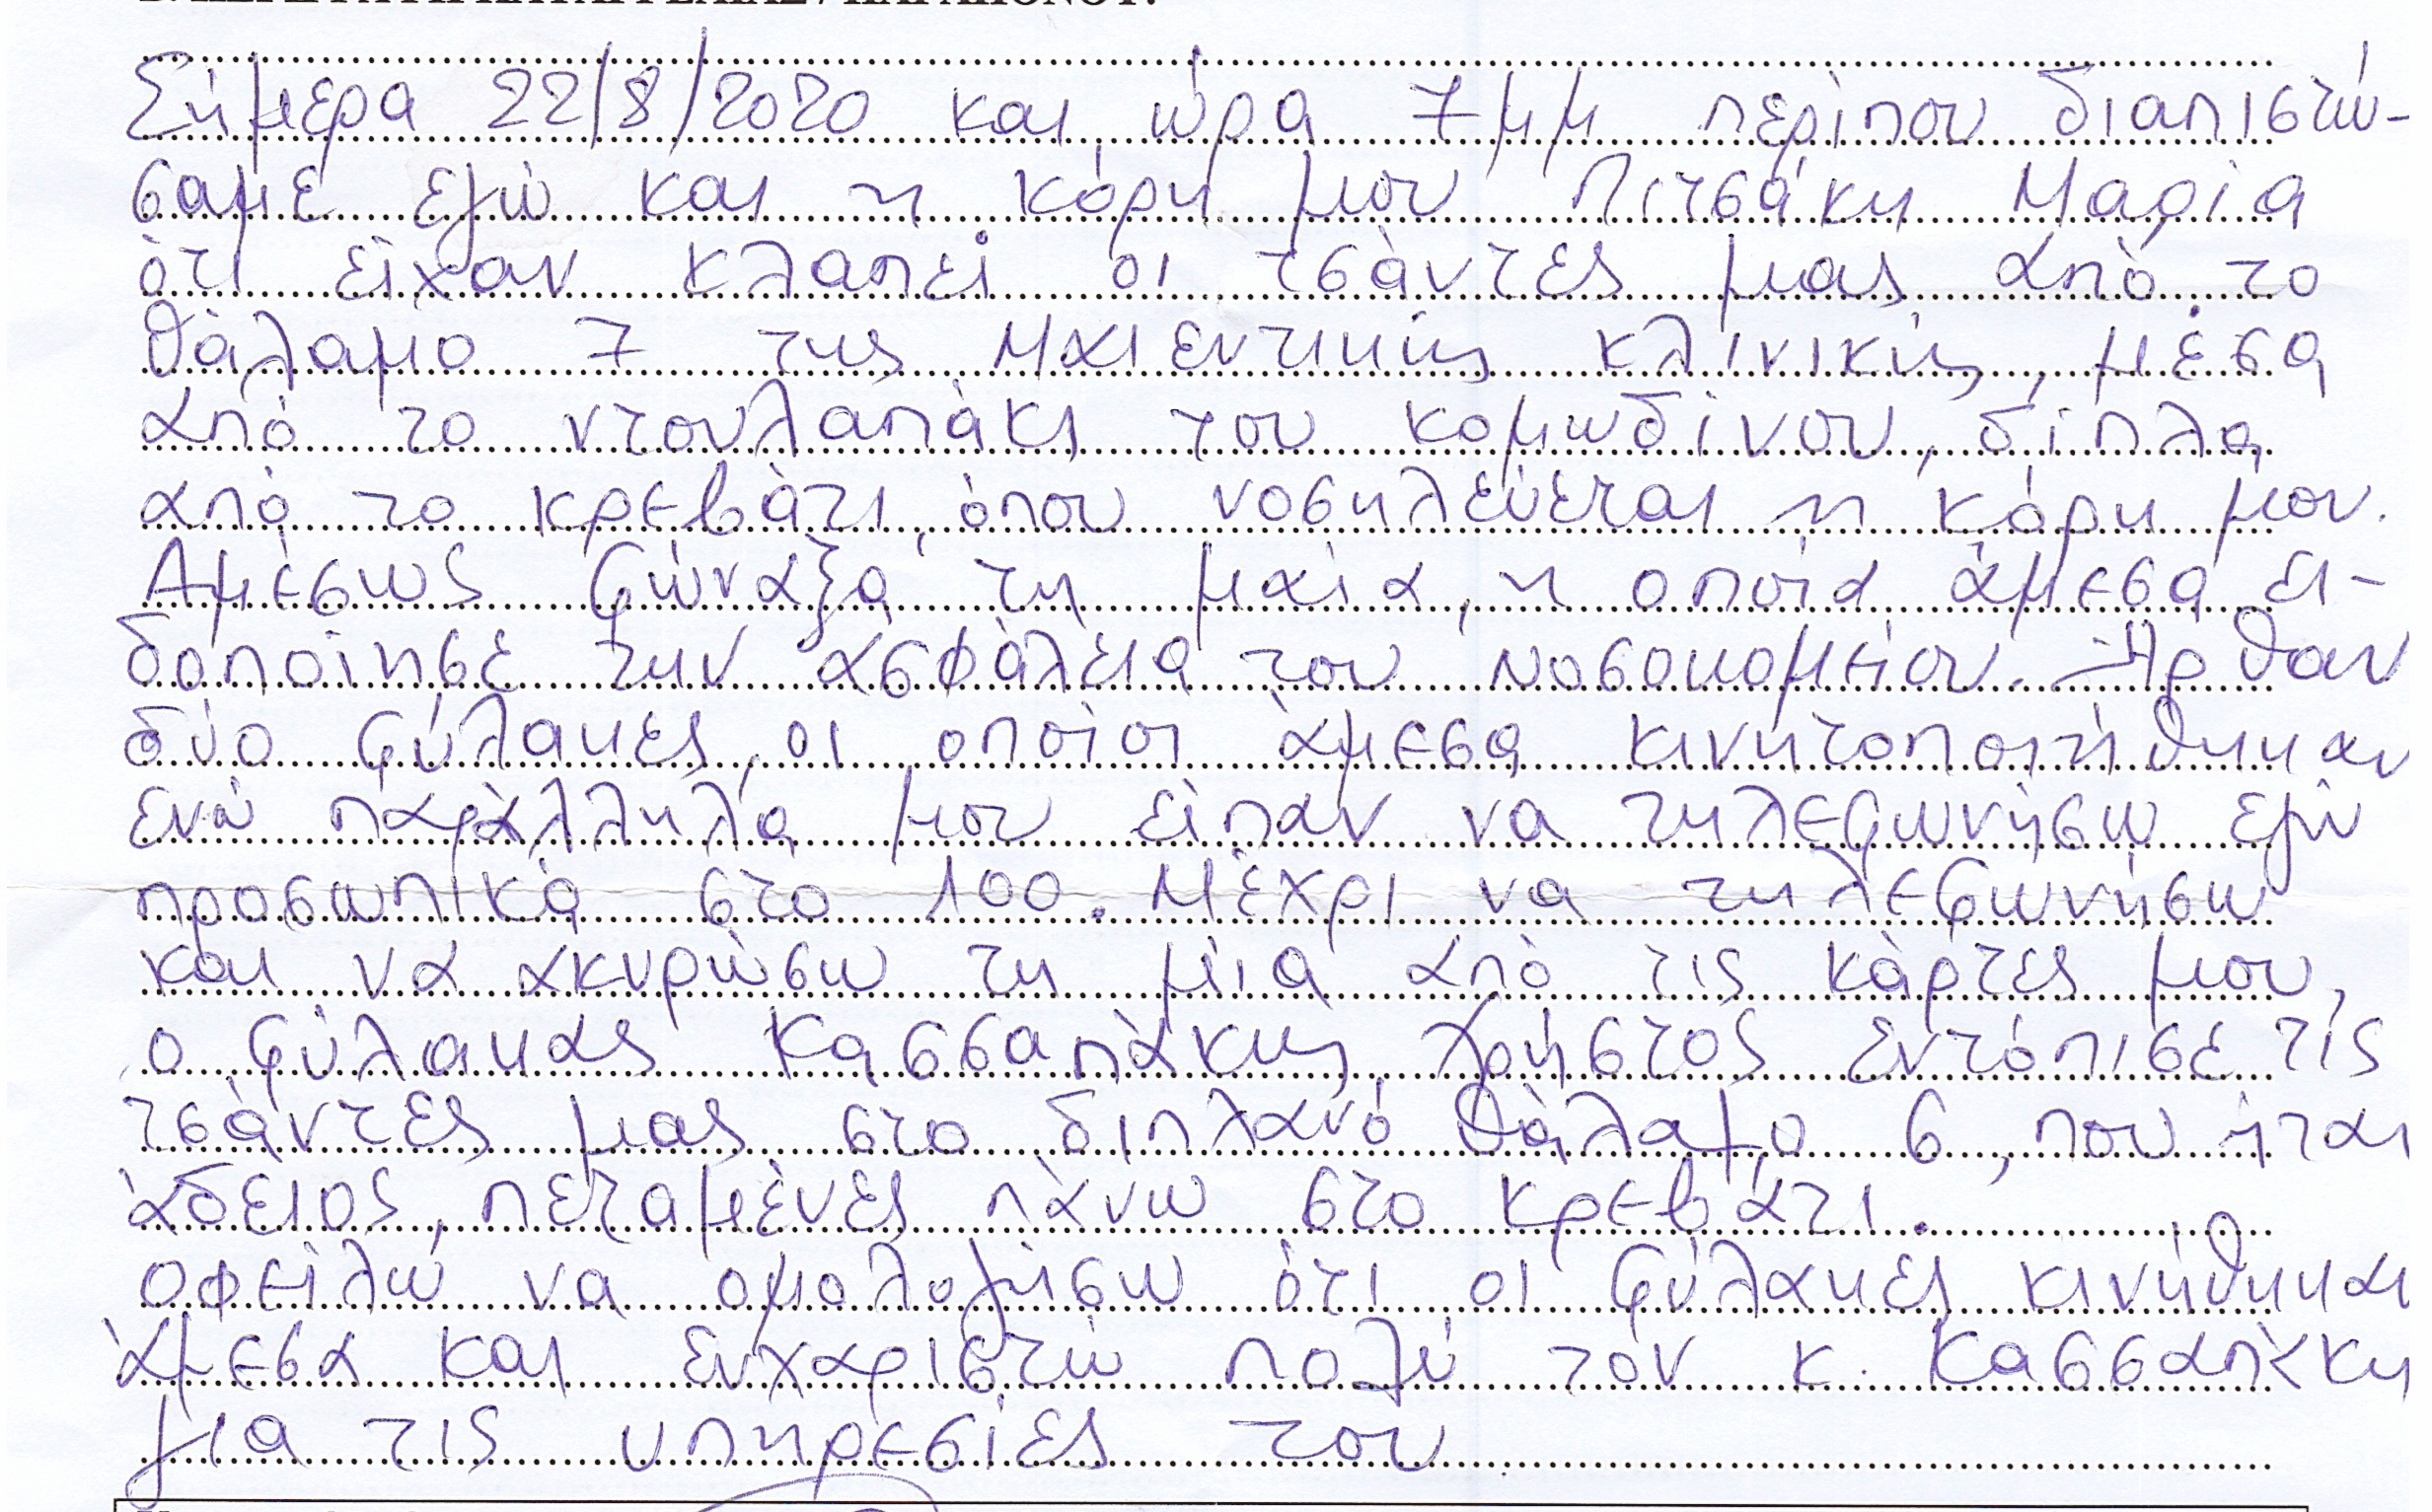 Σήμερα 22/8/2020 και ώρα 7μμ περίπου διαπιστώ-
σαμε εγώ και η κόρη μου Πιτσάκη Μαρία
ότι είχαν κλαπεί οι τσάντες μας από το
θάλαμο 7 της Μαιευτικής κλινικής, μέσα
από το ντουλαπάκι του κομωδίνου, δίπλα
από το κρεβάτι, όπου νοσηλεύεται η κόρη μου.
Αμέσως φώναξα τη μαία, η οποία άμεσα ει-
δοποίησε την ασφάλεια του νοσοκομείου. Ήρθαν
δύο φύλακες, οι οποίοι άμεσα κινητοποιήθηκαν
ενώ παράλληλα μου είπαν να τηλεφωνήσω εγώ
προσωπικά στο 100. Μέχρι να τηλεφωνήσω
και να ακυρώσω τη μία από τις κάρτες μου,
ο φύλακας Κασσαπάκης Χρήστος εντόπισε τις
τσάντες μας στο διπλανό θάλαμο 6, που ήταν
άδειος, πεταμένες πάνω στο κρεβάτι.
Οφείλω να ομολογήσω ότι οι φύλακες κινήθηκαν
άμεσα και ευχαριστώ πολύ τον κ. Κασσαπάκη
για τις υπηρεσίες του